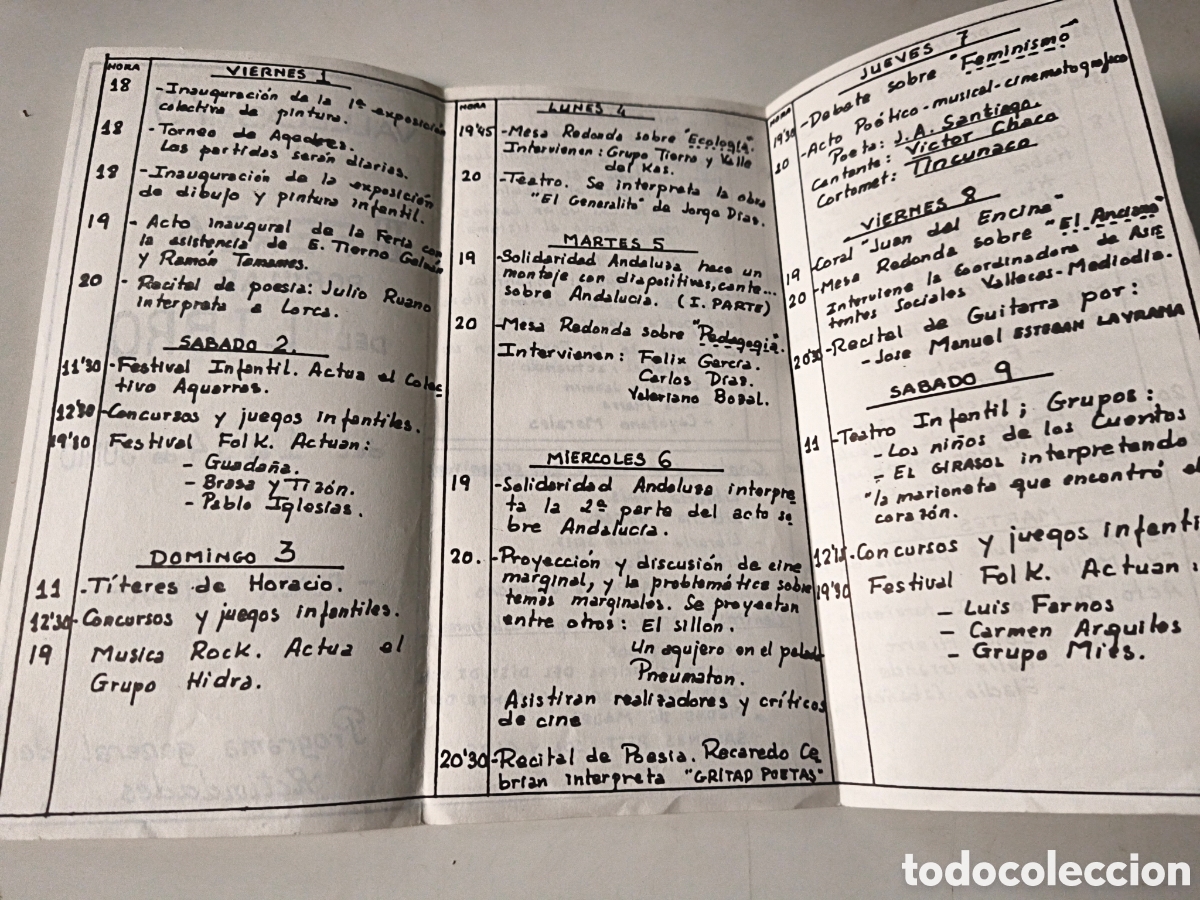 HORA
VIERNES 1
18 -Inauguración de la 1ª exposición
colectiva de pintura.
18 -Torneo de Agedres.
Las partidas serán diarias.
18 -Inauguración de la exposición
de dibujo y pintura infantil.
19 - Acto inaugural de la Feria con
la asistencia de E. Tierno Galván
y Ramón Tamames.
20 - Recital de poesia: Julio Ruano
interpreta a Lorca.
SABADO 2.
11'30 -Festival Infantil. Actua el Colec
tivo Aquarros.
12'30 -Concursos y juegos infantiles.
19'30 Festival Folk. Actuan:
- Guadaña.
- Brasa y Tizón.
- Pablo Iglesias.
DOMINGO 3
11 -Títeres de Horacio.
12'30 -Concursos y juegos infantiles.
19 Musica Rock. Actua el
Grupo Hidra.
HORA
LUNES 4
19'45 -Mesa Redonda sobre "Ecología".
Intervienen: Grupo Tierra y Valle
del Kas.
20 -Teatro. Se interpreta la obra
"El Generalito" de Jorge Dias.
MARTES 5
19 -Solidaridad Andaluza hace un
montaje con diapositivas, cante...
sobre Andalucía. (I. PARTE)
20 -Mesa Redonda sobre "Pedagogía".
Intervienen: Felix García.
Carlos Días.
Valeriano Bozal.
MIERCOLES 6
19 -Solidaridad Andaluza interpre
ta la 2ª parte del acto so
bre Andalucía.
20. -Proyección y discusión de cine
marginal, y la problemática sobre
temas marginales. Se proyectan
entre otros: El sillón.
Un agujero en el
Pneumaton.
Asistiran realizadores y críticos
de cine
20'30 -Recital de Poesia. Recaredo Ce
brian interpreta "GRITAD POETAS"
HORA
JUEVES 7
19'30 -Debate sobre "Feminismo"
20 -Acto Poético-musical-cinematografico
Poeta: J.A. Santiago.
Cantante: Victor Chaco
Cortomet: Tincunaco
VIERNES 8
19 Coral "Juan del Encina"
20 -Mesa Redonda sobre "El Anciano"
Interviene la Coordinadora de Asis
tentes Sociales Vallecas-Mediodia.
20'30 -Recital de Guitarra por:
- Jose Manuel ESTEBAN LAYRANA
SABADO 9
11 -Teatro Infantil; Grupos:
- Los niños de los Cuentos
- EL GIRASOL interpretando
"la marioneta que encontró el
corazón.
12'15 -Concursos y juegos infanti
19'30 Festival Folk. Actuan:
- Luis Farnos
- Carmen Arquilos
- Grupo Mies.
todocoleccion